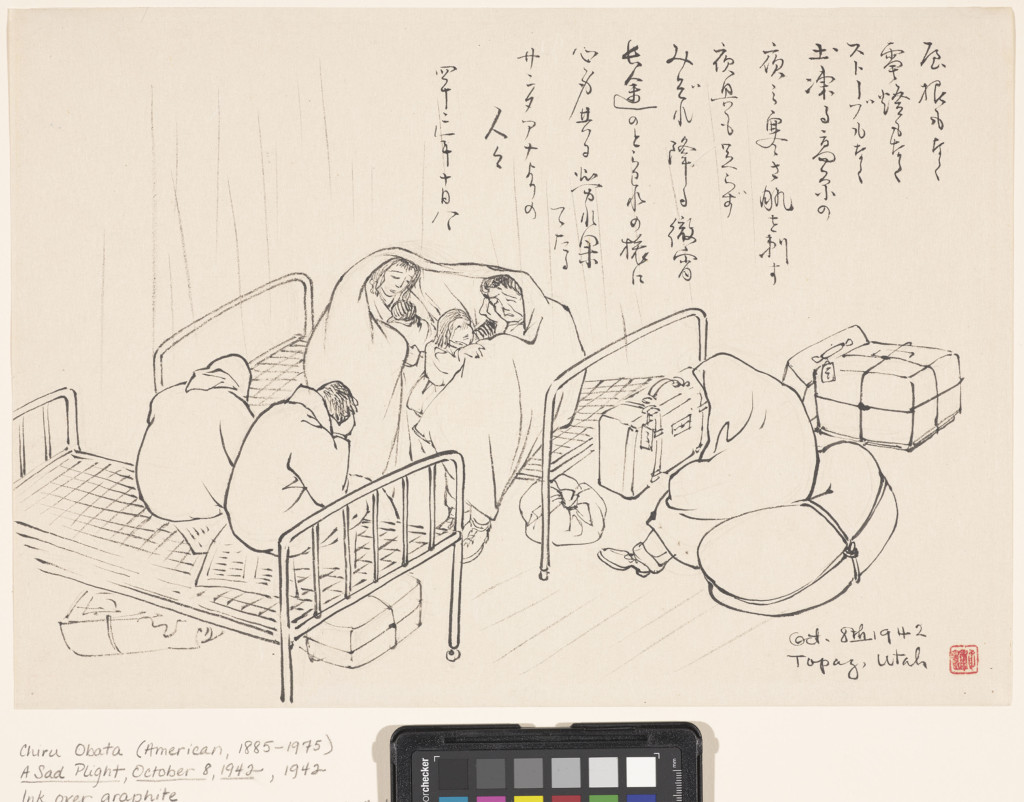 屋根もなく
電燈もなく
ストーブもなく
土凍る高原の
夜の寒さ肌を刺す
夜具も足らず
みぞれ降る徹宵
長途のとらはれの旅に
心身共に労れ果
てたる
サンタアナよりの
人々
四十二年十月八
Oct. 8th 1942
Topaz, Utah
Chiru Obata (American, 1885-1975)
A Sad Plight, October 8, 1942, 1942
Ink over graphite
orchecker